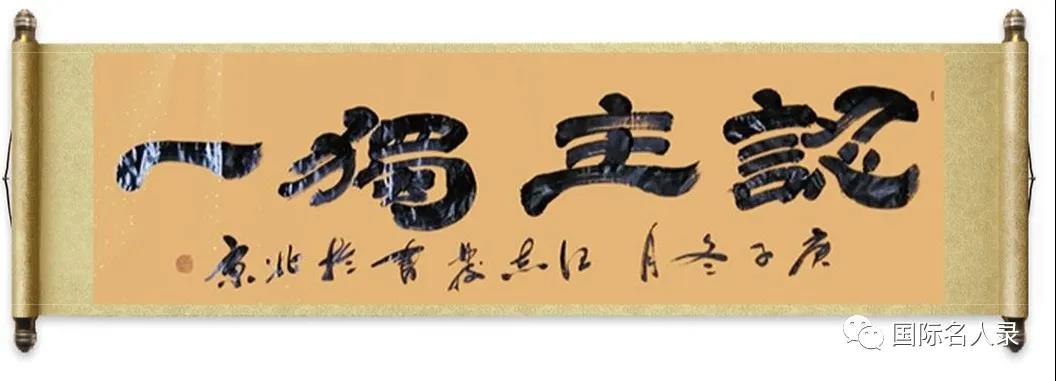 認主獨一
庚子冬月江志書於北京
国际名人录